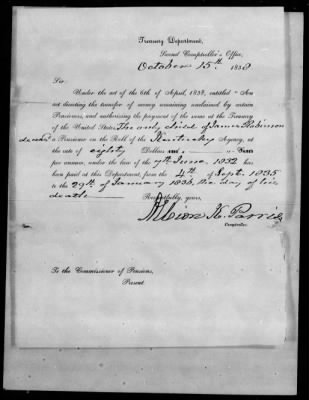 Treasury Department,
Second Comptroller's Office,
October 15th 1838
Sir:
Under the act of the 6th of April, 1838, entitled "An
act directing the transfer of money remaining unclaimed by certain
Pensioners, and authorizing the payment of the same at the Treasury
of the United States," The only child of James Robinson
deceased a Pensioner on the Roll of the Kentucky Agency, at
the rate of eighty Dollars and Cents
per annum, under the law of the 7th June, 1832 has
been paid at this Department, from the 4th of Sept. 1835
to the 29th of January 1836, the day of his
death
Respectfully, yours,
Albion K. Parris
Comptroller.
To the Commissioner of Pensions,
Present.